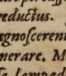 reductus.
egnoscerent
nerare. M